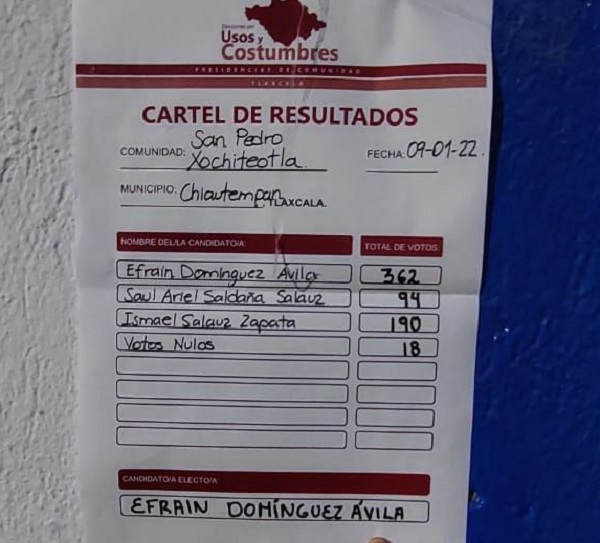 Elecciones por
Usos y
Costumbres
PRESIDENCIAS DE COMUNIDAD
TLAXCALA
CARTEL DE RESULTADOS
COMUNIDAD: San Pedro Xochiteotla
FECHA: 09-01-22.
MUNICIPIO: Chiautempan, TLAXCALA.
NOMBRE DEL/LA CANDIDATO/A: TOTAL DE VOTOS:
Efraín Domínguez Avila 362
Saul Ariel Saldaña Salauz 94
Ismael Salauz Zapata 190
Votos Nulos 18
CANDIDATO/A ELECTO/A:
EFRAIN DOMÍNGUEZ ÁVILA